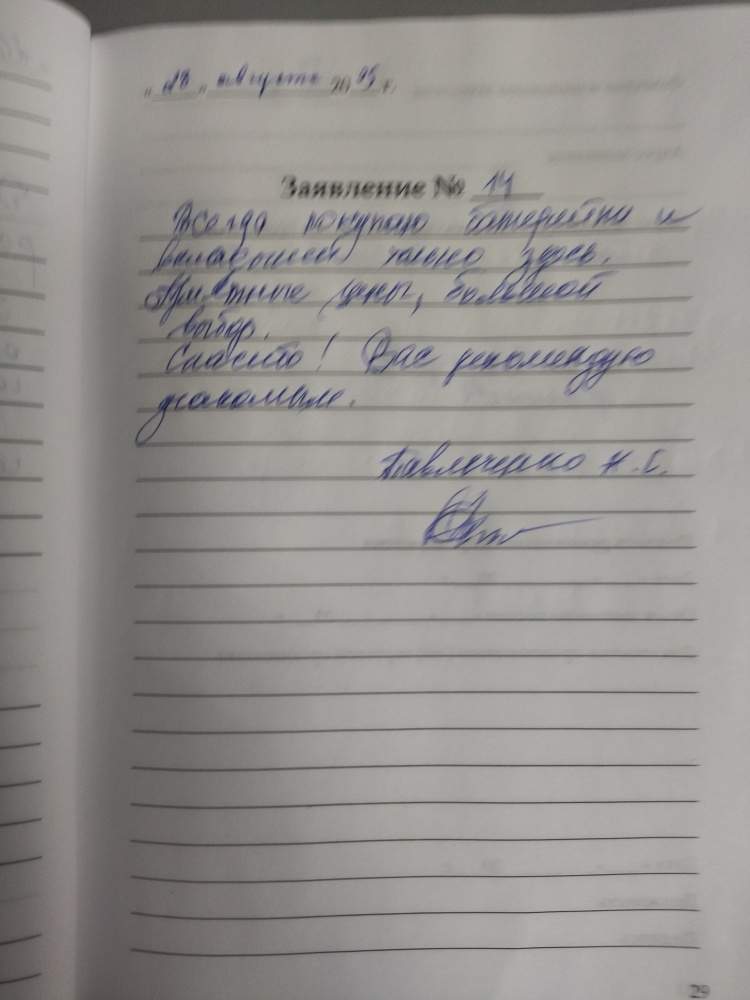 "28" августа 2025 г.
Заявление № 14
Всегда покупаю батарейки и
только здесь.
Приятные цены, большой
выбор.
Спасибо! Вас рекомендую
знакомым.
Павличенко Н. С.
29